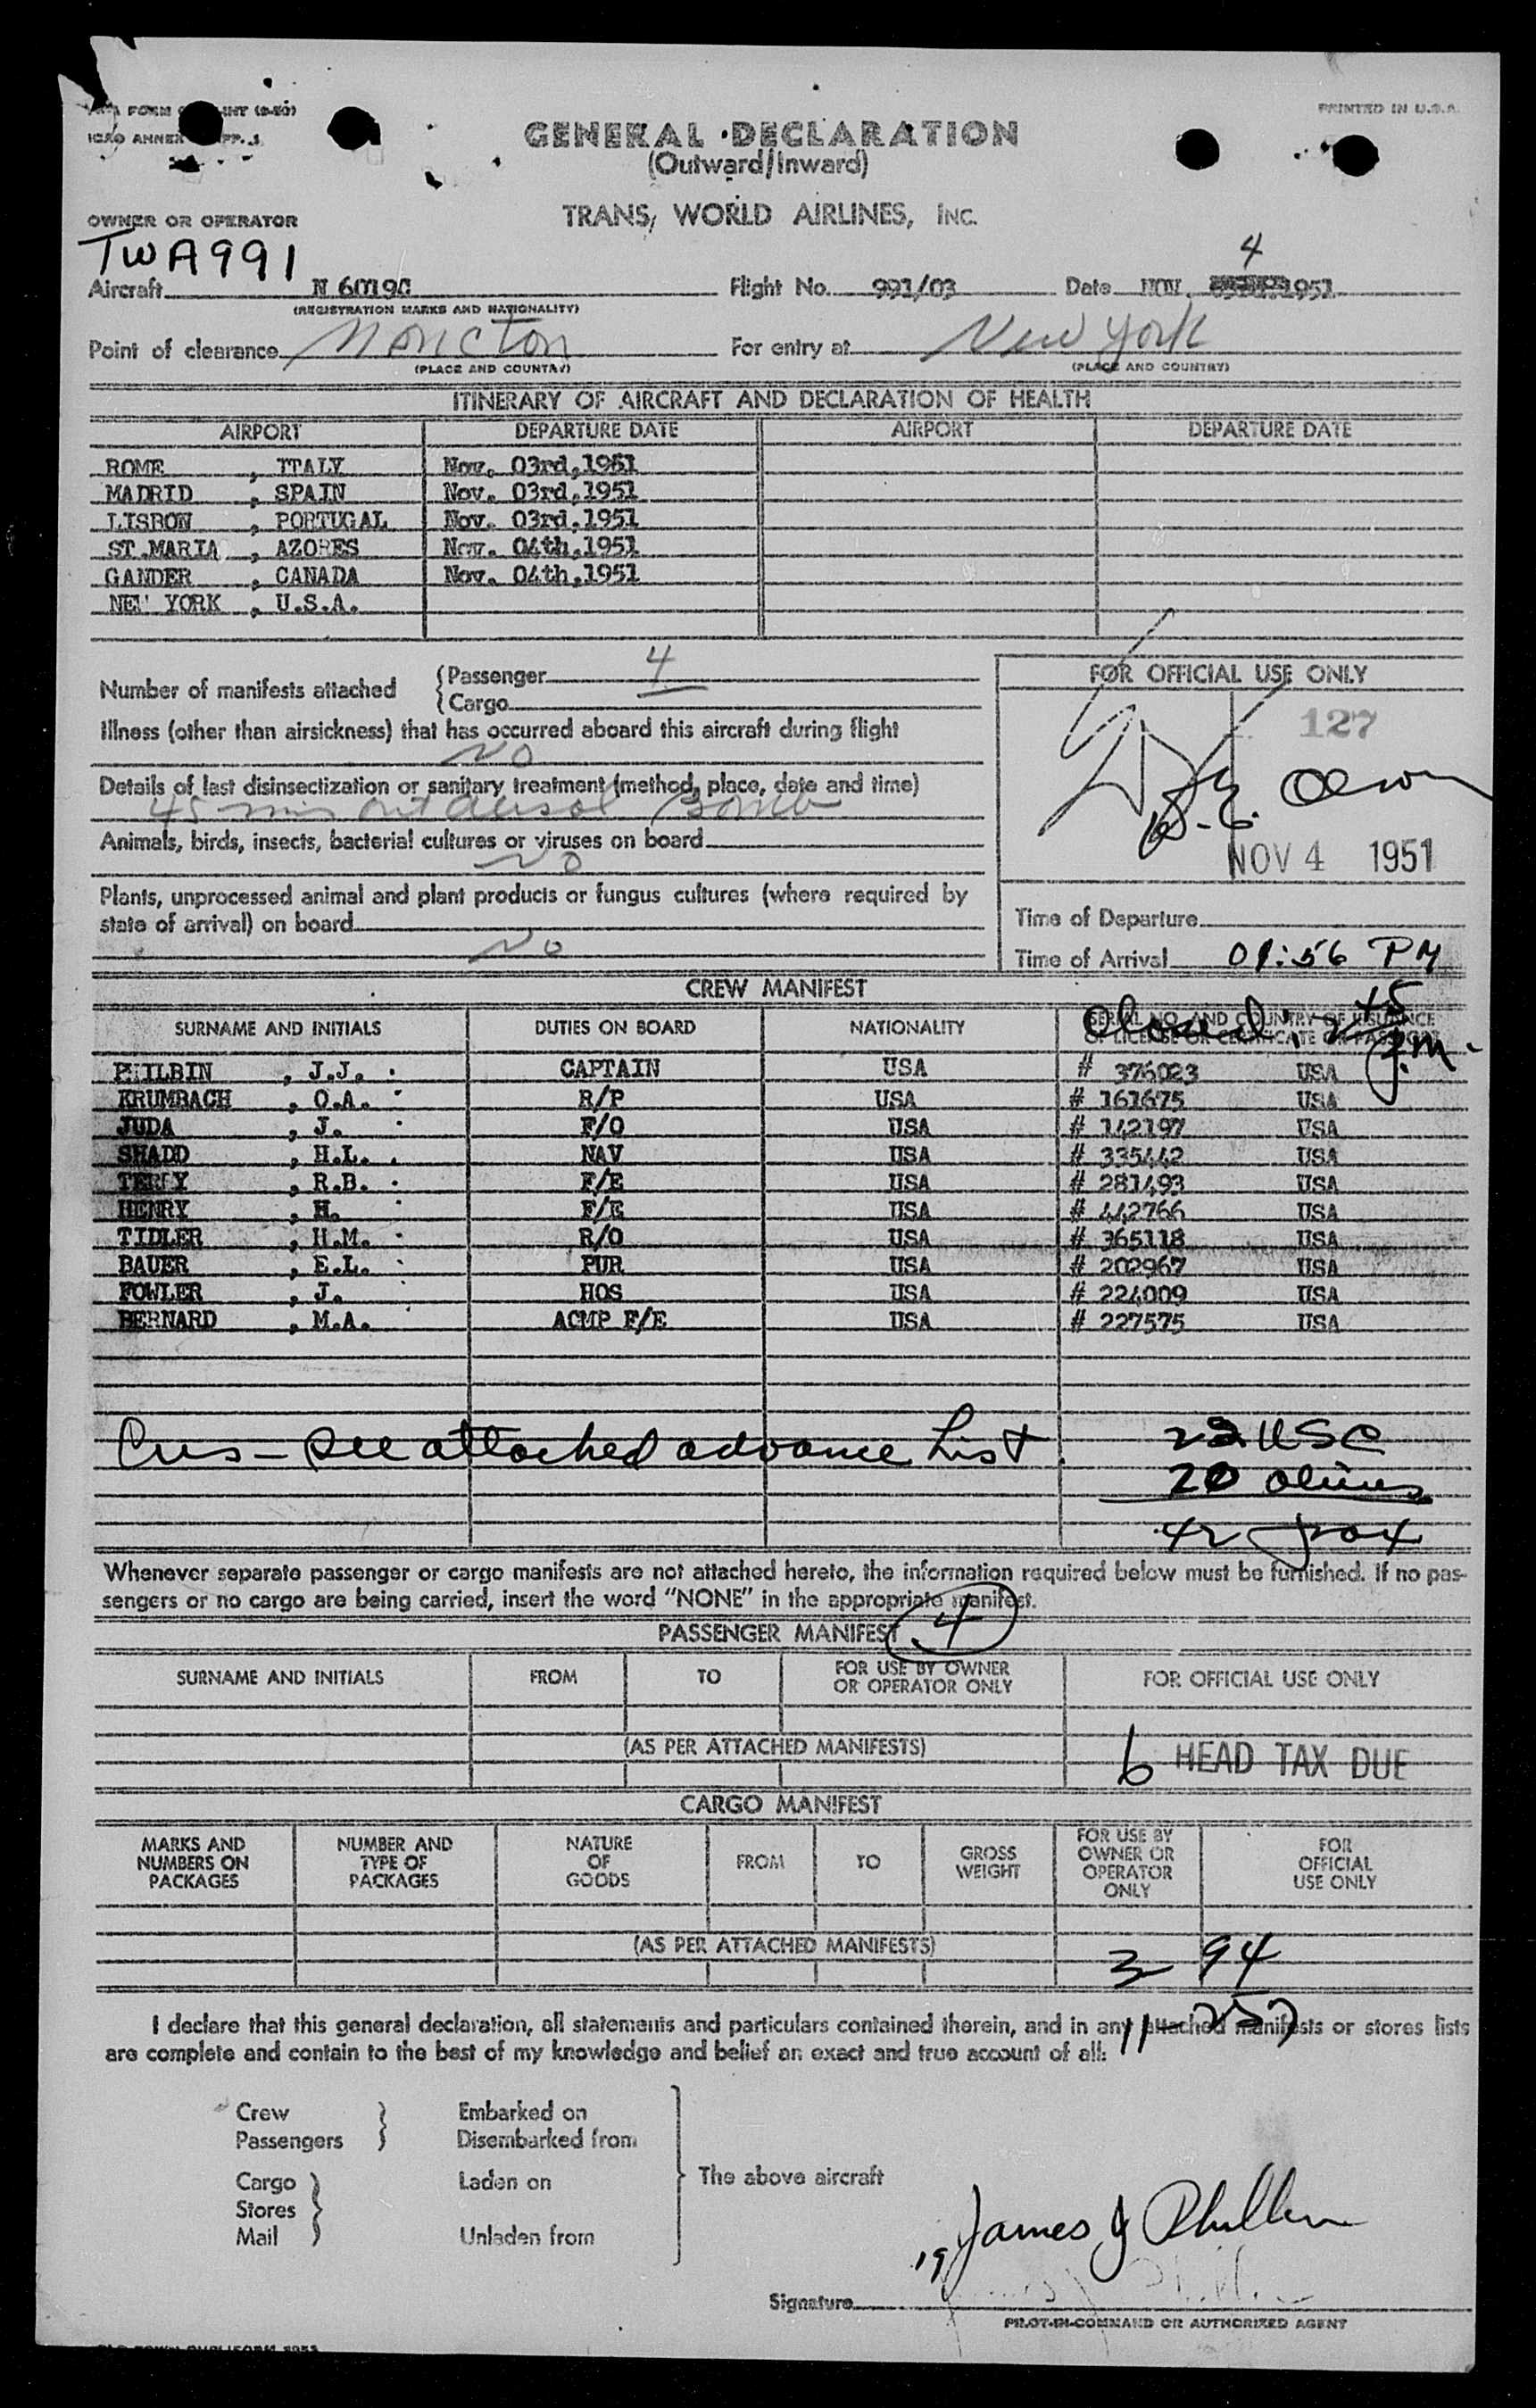 PRINTED IN U.S.A.
GENERAL DECLARATION
(Outward/Inward)
OWNER OR OPERATOR
TRANS WORLD AIRLINES, INC.
TWA991
4
Aircraft N 6019C Flight No. 991/03 Date NOV. 1951
(REGISTRATION MARKS AND NATIONALITY)
Point of clearance Moncton For entry at New York
(PLACE AND COUNTRY) (PLACE AND COUNTRY)
ITINERARY OF AIRCRAFT AND DECLARATION OF HEALTH
AIRPORT DEPARTURE DATE AIRPORT DEPARTURE DATE
ROME , ITALY Nov. 03rd,1951
MADRID , SPAIN Nov. 03rd,1951
LISBON , PORTUGAL Nov. 03rd,1951
ST.MARIA , AZORES Nov. 04th,1951
GANDER , CANADA Nov. 04th,1951
NEW YORK , U.S.A.
Number of manifests attached
Passenger 4
Cargo
Illness (other than airsickness) that has occurred aboard this aircraft during flight
NO
Details of last disinsectization or sanitary treatment (method, place, date and time)
45 min out aerosol bomb
Animals, birds, insects, bacterial cultures or viruses on board
NO
Plants, unprocessed animal and plant products or fungus cultures (where required by
state of arrival) on board
No
FOR OFFICIAL USE ONLY
127
Olson
NOV 4 1951
Time of Departure
Time of Arrival 01:56 PM
CREW MANIFEST
Closed: 2 45 p.m.
SURNAME AND INITIALS DUTIES ON BOARD NATIONALITY SERIAL NO. AND COUNTRY OF ISSUANCE
OF LICENSE OR CERTIFICATE OR PASSPORT
PHILBIN , J.J. CAPTAIN USA # 376023 USA
KRUMBACH , O.A. R/P USA # 161675 USA
JUDA , J. F/O USA # 142197 USA
SHADD , H.L. NAV USA # 335442 USA
TERLY , R.B. F/E USA # 281493 USA
HENRY , H. F/E USA # 442766 USA
TIDLER , H.M. R/O USA # 365118 USA
BAUER , E.L. PUR USA # 202967 USA
FOWLER , J. HOS USA # 224009 USA
BERNARD , M.A. ACMP F/E USA # 227575 USA
Cus - See attached advance List
22 USC
20 aliens
42
Whenever separate passenger or cargo manifests are not attached hereto, the information required below must be furnished. If no pas-
sengers or no cargo are being carried, insert the word "NONE" in the appropriate manifest.
PASSENGER MANIFEST 4
SURNAME AND INITIALS FROM TO FOR USE BY OWNER
OR OPERATOR ONLY FOR OFFICIAL USE ONLY
(AS PER ATTACHED MANIFESTS)
6 HEAD TAX DUE
CARGO MANIFEST
MARKS AND
NUMBERS ON
PACKAGES
NUMBER AND
TYPE OF
PACKAGES
NATURE
OF
GOODS
FROM
TO
GROSS
WEIGHT
FOR USE BY
OWNER OR
OPERATOR
ONLY
FOR
OFFICIAL
USE ONLY
(AS PER ATTACHED MANIFESTS)
3 94
11 257
I declare that this general declaration, all statements and particulars contained therein, and in any attached manifests or stores lists
are complete and contain to the best of my knowledge and belief an exact and true account of all:
Crew
Passengers
Embarked on
Disembarked from
Cargo
Stores
Mail
Laden on
Unladen from
The above aircraft
James J Philbin
Signature
PILOT-IN-COMMAND OR AUTHORIZED AGENT